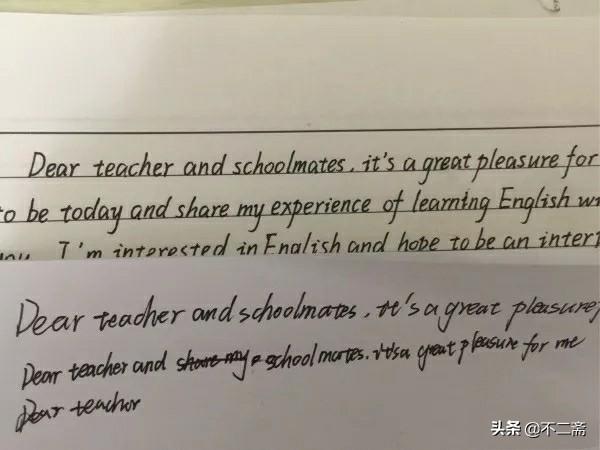 Dear teacher and schoolmates, it's a great pleasure for
to be today and share my experience of learning English wi
you. I'm interested in English and hope to be an inter
Dear teacher and schoolmates, it's a great pleasure,
Dear teacher and share my schoolmates. it's a great pleasure for me
Dear teachor
头条 @不二斋